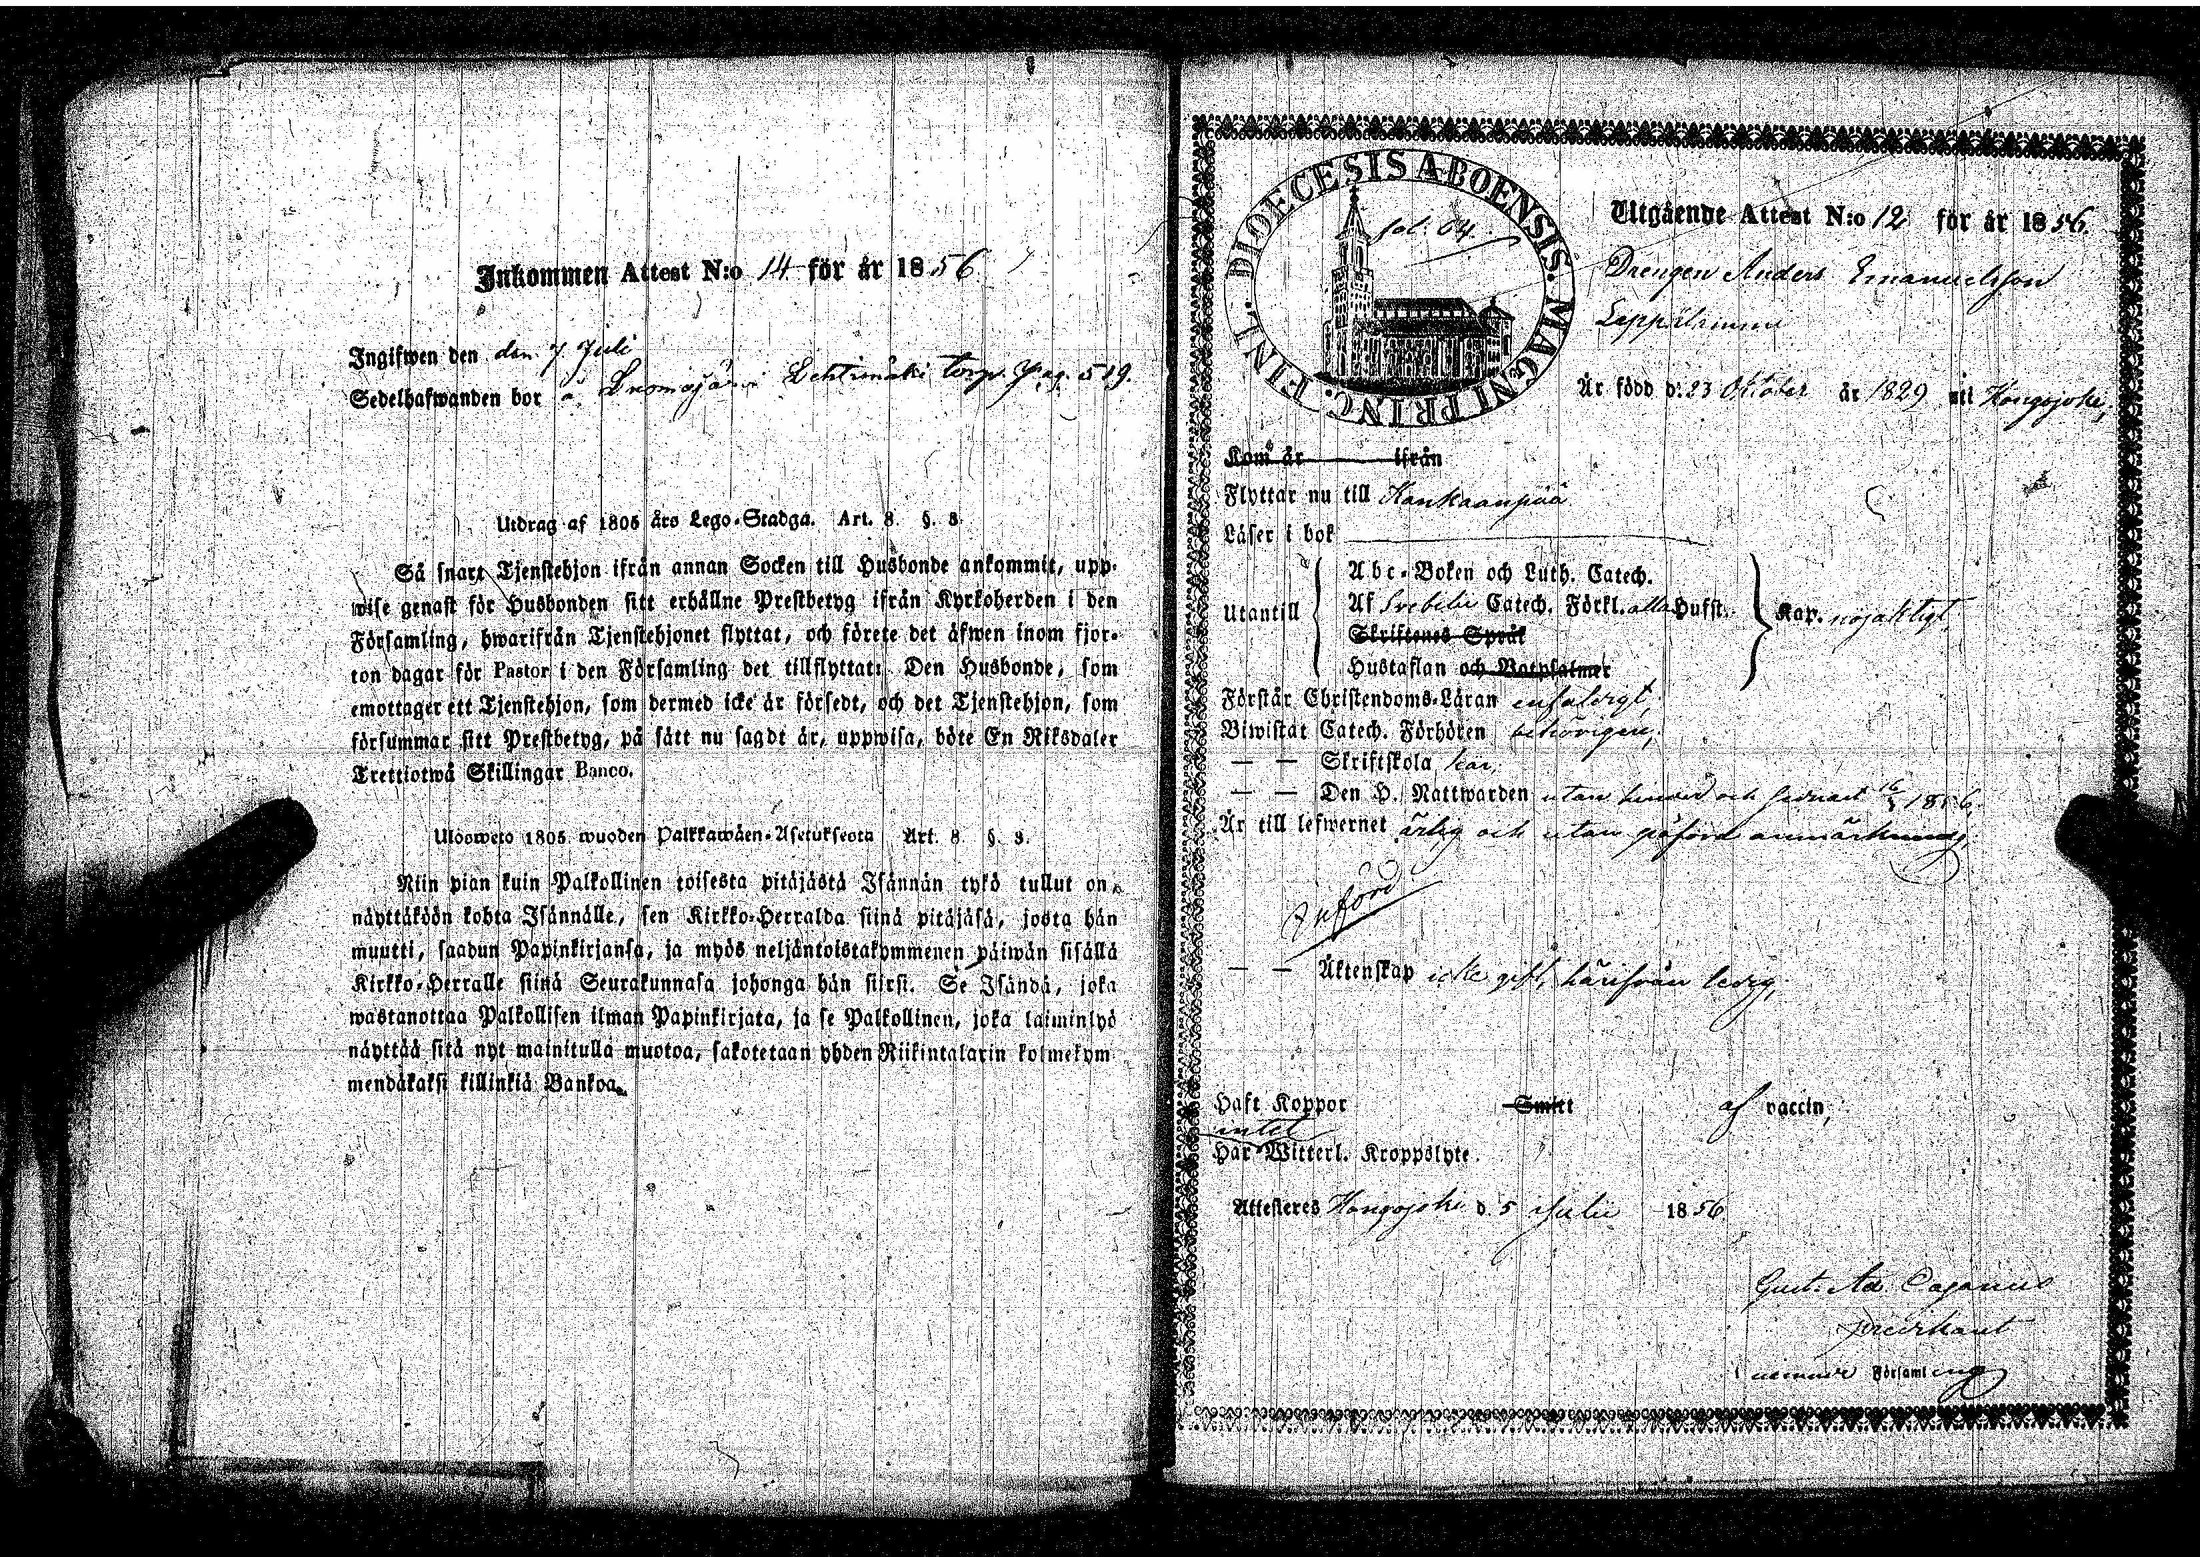 Inkommen Attest N:o 14 för år 1856
Ingifwen den den 7 Juli
Sedelhafwanden bor å Lehtimäki torp. Pag. 519.
Utdrag af 1805 års Lego-Stadga. Art. 8. §. 3.
Så snart Tjenstehjon ifrån annan Socken till Husbonde ankommit, upp-
wise genast för Husbonden sitt erhållne Prestbetyg ifrån Kyrkoherden i den
Församling, hwarifrån Tjenstehjonet flyttat, och förete det äfwen inom fjor-
ton dagar för Pastor i den Församling det tillflyttat: Den Husbonde, som
emottager ett Tjenstehjon, som dermed icke är försedt, och det Tjenstehjon, som
försummar sitt Prestbetyg, på sätt nu sagdt är, uppwisa, böte En Riksdaler
Trettiotwå Skillingar Banco.
Ulosweto 1805 wuoden Palkkawäen-Asetuksesta Art. 8 §. 3.
Niin pian kuin Palkollinen toisesta pitäjästä Isännän tykö tullut on,
näyttäköön kohta Isännälle, sen Kirkko-Herralda siinä pitäjäsä, josta hän
muutti, saadun Papinkirjansa, ja myös neljäntoistakymmenen päiwän sisällä
Kirkko-Herralle siinä Seurakunnasa johonga hän siirsi. Se Isändä, joka
wastanottaa Palkollisen ilman Papinkirjata, ja se Palkollinen, joka laiminlyö
näyttää sitä nyt mainitulla muotoa, sakotetaan yhden Riikintalarin kolmekym-
mendäkaksi killinkiä Bankoa.
DIOECESIS ABOENSIS. MAGNI PRINC. FINL.
fol. 64
Utgående Attest N:o 12 för år 1856.
Drengen Anders Emanuelsson
Är född d: 23 Oktober år 1829 uti Hongojoki,
Kom år ifrån
Flyttar nu till Kankaanpää
Läser i bok
Utantill
Abc-Boken och Luth. Catech.
Af Svebelii Catech. Förkl. alla Hufst.
Skriftenes Språk
Hustaflan och Botpsalmer
Kap. nöjaktigt,
Förstår Christendoms-Läran enfaldigt,
Biwistat Catech. Förhören behörigen,
— — Skriftskola här,
— — Den H. Nattwarden utan hinder och sednast 1856.
Är till lefwernet ärlig och utan påförd anmärkning,
Införd
— — Äktenskap icke gift, härifrån ledig,
Haft Koppor Smitt af vaccin,
intet
Har Witterl. Kroppslyte.
Attesteres Hongojoki d. 5 Julii 1856
Gust. Ad.
Församling